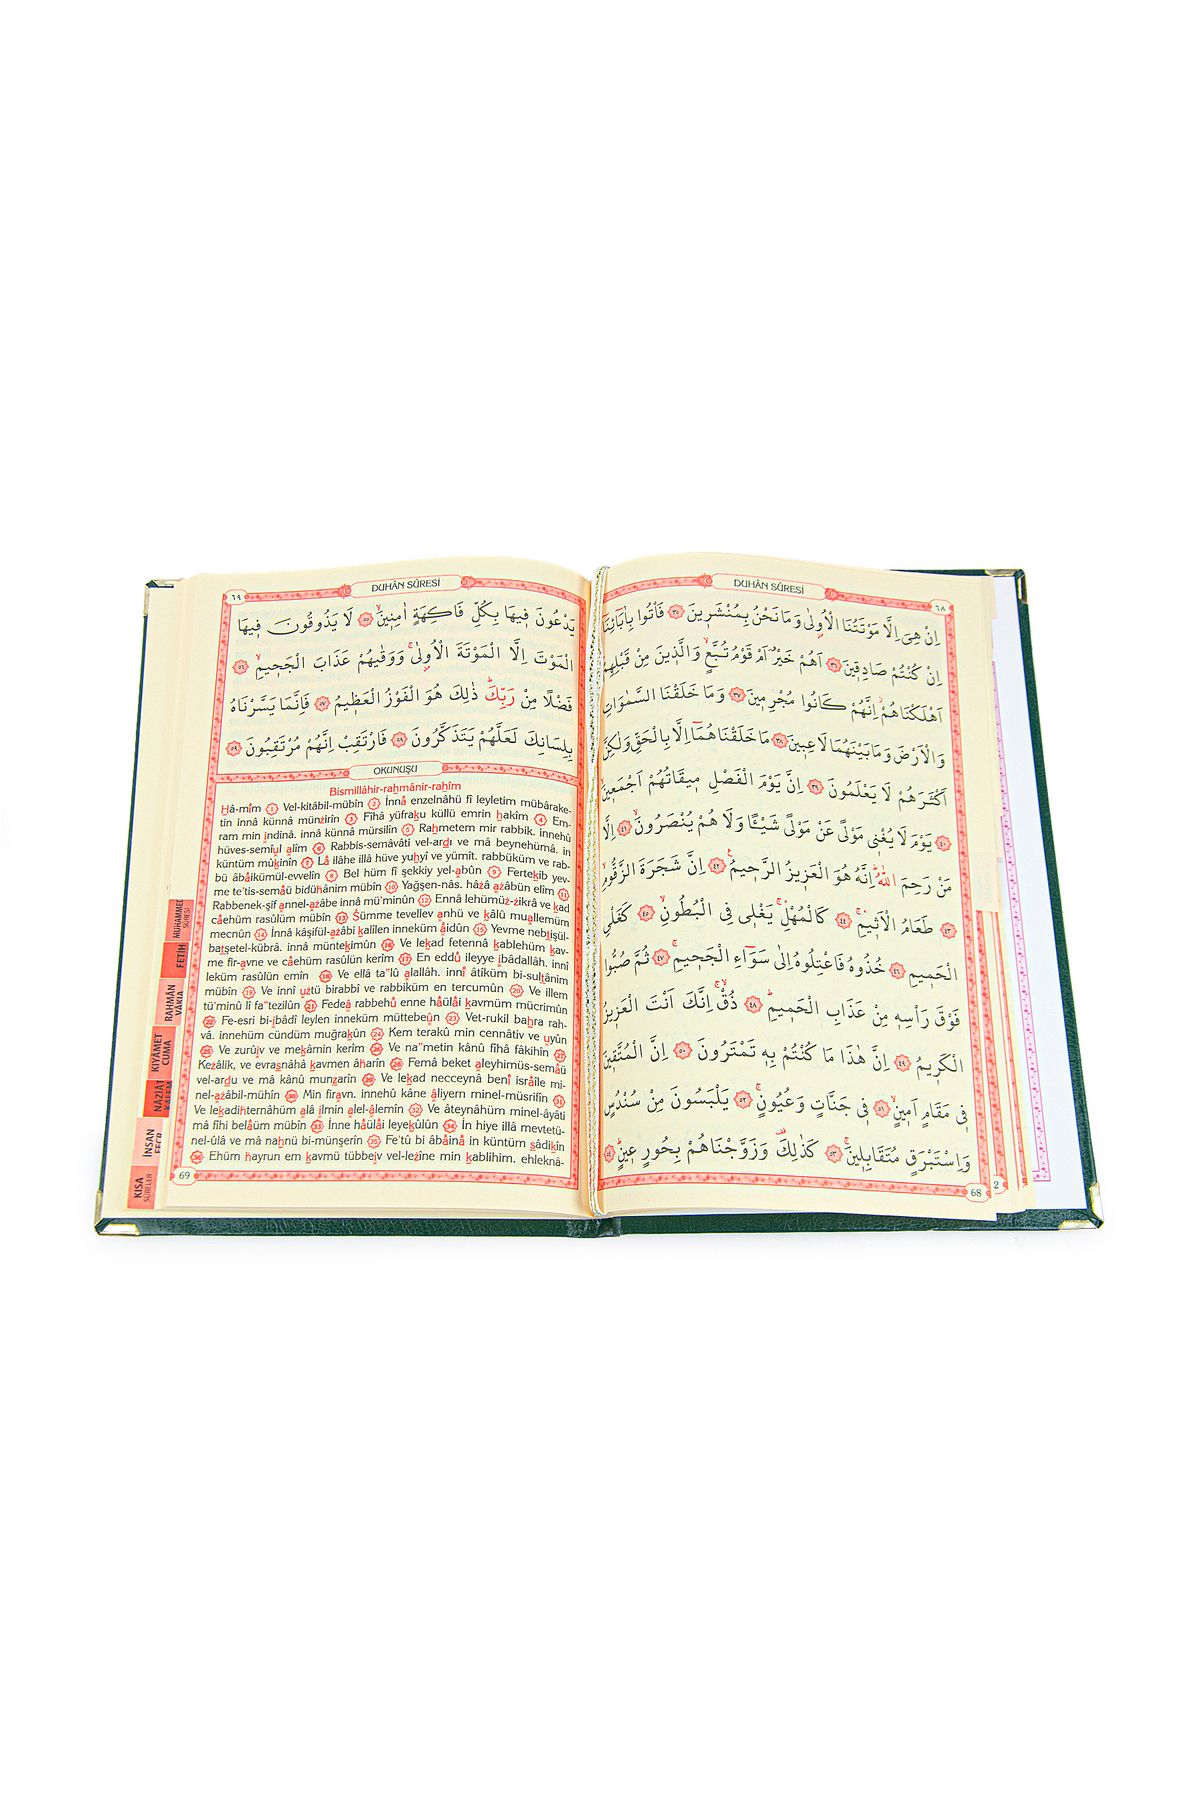 DUHÂN SÛRESİ
٦٨
اِنْ هِيَ اِلَّا مَوْتَتُنَا الْاُو۫لٰى وَمَا نَحْنُ بِمُنْشَر۪ينَ ﴿٣٥﴾ فَأْتُوا بِاٰبَٓائِنَٓا
اِنْ كُنْتُمْ صَادِق۪ينَ ﴿٣٦﴾ اَهُمْ خَيْرٌ اَمْ قَوْمُ تُبَّعٍۙ وَالَّذ۪ينَ مِنْ قَبْلِهِمْ
اَهْلَكْنَاهُمْۘ اِنَّهُمْ كَانُوا مُجْرِم۪ينَ ﴿٣٧﴾ وَمَا خَلَقْنَا السَّمٰوَاتِ
وَالْاَرْضَ وَمَا بَيْنَهُمَا لَاعِب۪ينَ ﴿٣٨﴾ مَا خَلَقْنَاهُمَٓا اِلَّا بِالْحَقِّ وَلٰكِنَّ
اَكْثَرَهُمْ لَا يَعْلَمُونَ ﴿٣٩﴾ اِنَّ يَوْمَ الْفَصْلِ م۪يقَاتُهُمْ اَجْمَع۪ينَۙ
﴿٤٠﴾ يَوْمَ لَا يُغْن۪ي مَوْلًى عَنْ مَوْلًى شَيْـًٔا وَلَا هُمْ يُنْصَرُونَۙ ﴿٤١﴾ اِلَّا
مَنْ رَحِمَ اللّٰهُۜ اِنَّهُ هُوَ الْعَز۪يزُ الرَّح۪يمُ۟ ﴿٤٢﴾ اِنَّ شَجَرَةَ الزَّقُّومِۙ
﴿٤٣﴾ طَعَامُ الْاَث۪يمِۚ ﴿٤٤﴾ كَالْمُهْلِۚ يَغْل۪ي فِي الْبُطُونِۙ ﴿٤٥﴾ كَغَلْيِ
الْحَم۪يمِ ﴿٤٦﴾ خُذُوهُ فَاعْتِلُوهُ اِلٰى سَوَٓاءِ الْجَح۪يمِۚ ﴿٤٧﴾ ثُمَّ صُبُّوا
فَوْقَ رَأْسِه۪ مِنْ عَذَابِ الْحَم۪يمِۜ ﴿٤٨﴾ ذُقْۙ اِنَّكَ اَنْتَ الْعَز۪يزُ
الْكَر۪يمُ ﴿٤٩﴾ اِنَّ هٰذَا مَا كُنْتُمْ بِه۪ تَمْتَرُونَ ﴿٥٠﴾ اِنَّ الْمُتَّق۪ينَ
ف۪ي مَقَامٍ اَم۪ينٍۙ ﴿٥١﴾ ف۪ي جَنَّاتٍ وَعُيُونٍۚ ﴿٥٢﴾ يَلْبَسُونَ مِنْ سُنْدُسٍ
وَاِسْتَبْرَقٍ مُتَقَابِل۪ينَۚ ﴿٥٣﴾ كَذٰلِكَ۠ وَزَوَّجْنَاهُمْ بِحُورٍ ع۪ينٍۜ ﴿٥٤﴾
68
2
DUHÂN SÛRESİ
٦٩
يَدْعُونَ ف۪يهَا بِكُلِّ فَاكِهَةٍ اٰمِن۪ينَۙ ﴿٥٥﴾ لَا يَذُوقُونَ ف۪يهَا
الْمَوْتَ اِلَّا الْمَوْتَةَ الْاُو۫لٰىۚ وَوَقٰيهُمْ عَذَابَ الْجَح۪يمِۙ ﴿٥٦﴾
فَضْلًا مِنْ رَبِّكَۜ ذٰلِكَ هُوَ الْفَوْزُ الْعَظ۪يمُ ﴿٥٧﴾ فَاِنَّمَا يَسَّرْنَاهُ
بِلِسَانِكَ لَعَلَّهُمْ يَتَذَكَّرُونَ ﴿٥٨﴾ فَارْتَقِبْ اِنَّهُمْ مُرْتَقِبُونَ ﴿٥٩﴾
OKUNUŞU
Bismillâhir-rahmânir-rahîm
Hâ-mîm 1 Vel-kitâbil-mübîn 2 İnnâ enzelnâhü fî leyletim mübârake-
tin innâ künnâ münzirîn 3 Fîhâ yüfraku küllü emrin hakîm 4 Em-
ram min indinâ. innâ künnâ mürsilîn 5 Rahmetem mir rabbik. innehû
hüves-semîul alîm 6 Rabbis-semâvâti vel-ardı ve mâ beynehümâ. in
küntüm mûkinîn 7 Lâ ilâhe illâ hüve yuhyî ve yümît. rabbüküm ve rab-
bü âbâikümül-evvelîn 8 Bel hüm fî şekkiy yel-abûn 9 Fertekib yev-
me te'tis-semâü bidühânim mübîn 10 Yağşen-nâs. hâzâ azâbün elîm 11
Rabbenek-şif annel-azâbe innâ mü'minûn 12 Ennâ lehümüz-zikrâ ve kad
câehüm rasûlüm mübîn 13 Sümme tevellev anhü ve kâlû muallemüm
mecnûn 14 İnnâ kâşifül-azâbi kalîlen inneküm âidûn 15 Yevme nebtişül-
batşetel-kübrâ. innâ müntekimûn 16 Ve lekad fetennâ kablehüm kav-
me fir-avne ve câehüm rasûlün kerîm 17 En eddû ileyye ıbâdallah. innî
leküm rasûlün emîn 18 Ve ellâ ta"lû alallâh. innî âtîküm bi-sultânim
mübîn 19 Ve innî uztü birabbî ve rabbiküm en tercumûn 20 Ve illem
tü'minû lî fa"tezilûn 21 Fedeâ rabbehû enne hâülâi kavmüm mücrimûn
22 Fe-esri bi-ibâdî leylen inneküm müttebeûn 23 Vet-rukil bahra rah-
vâ. innehüm cündüm muğrakûn 24 Kem terakû min cennâtiv ve uyûn
25 Ve zurûıv ve mekâmin kerîm 26 Ve na"metin kânû fîhâ fâkihîn 27
Kezâlik, ve evrasnâhâ kavmen âharîn 28 Femâ beket aleyhimüs-semâü
vel-ardu ve mâ kânû munzarîn 29 Ve lekad necceynâ benî isrâîle mi-
nel-azâbil-mühîn 30 Min firavn. innehû kâne âliyem minel-müsrifîn 31
Ve lekadihternâhüm alâ ılmin alel-âlemîn 32 Ve âteynâhüm minel-âyâti
mâ fîhi belâüm mübîn 33 İnne hâülâi leyekûlûn 34 İn hiye illâ mevtetü-
nel-ûlâ ve mâ nahnü bi-münşerîn 35 Fe'tû bi âbâinâ in küntüm sâdikîn
36 Ehüm hayrun em kavmü tübbeıv vel-lezîne min kablihim. ehleknâ-
69
MUHAMMED
SÛRESİ
FETİH
RAHMÂN
VÂKIA
KIYÂMET
CUMA
NÂZİÂT
İNSAN
FECR
KISA
SÛRELER